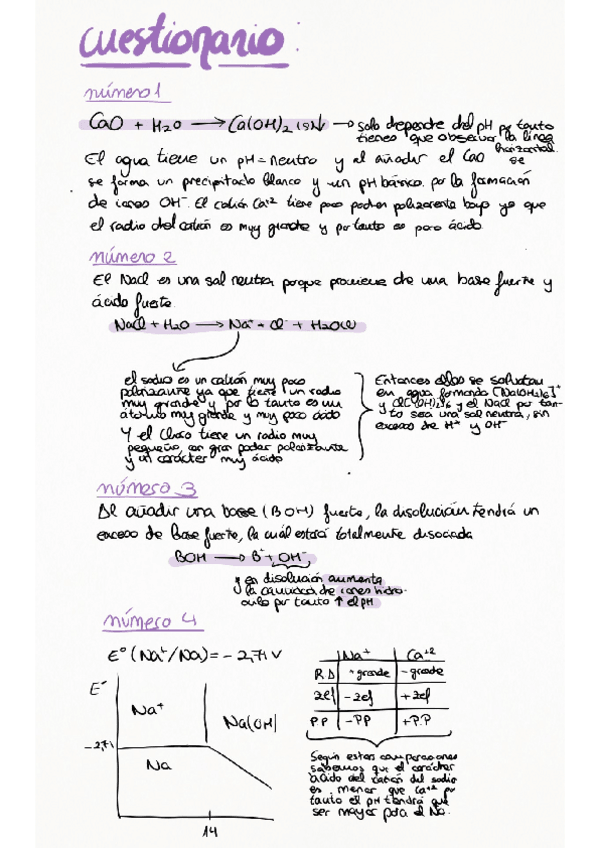 cuestionario:
número 1
CaO + H₂O → Ca(OH)₂ (s)↓ → solo depende del pH por tanto
tienes que observar la línea
horizontal.
El agua tiene un pH = neutro y al añadir el CaO se
se forma un precipitado blanco y un pH básico por la formación
de iones OH⁻. El catión Ca⁺² tiene poco poder polizarente bajo ya que
el radio del catión es muy grande y por tanto es poco ácido.
número 2
El NaCl es una sal neutra porque proviene de una base fuerte y
ácido fuerte.
NaCl + H₂O → Na⁺ + Cl⁻ + H₂O
el sodio es un catión muy poco
polarizante ya que tiene un radio
muy grande y por lo tanto es un
átomo muy grande y muy poco ácido
Y el Cloro tiene un radio muy
pequeño, con gran poder polarizante
y un carácter muy ácido
Entonces ellos se solvatan
en agua formando [Na(OH₂)₆]⁺
y y el NaCl por tan-
to será una sal neutra, sin
exceso de H⁺ y OH⁻
número 3
Al añadir una base (BOH) fuerte, la disolución tendrá un
exceso de base fuerte, la cuál estará totalmente disociada
BOH → B⁺ + OH⁻
y en disolución aumenta
la cantidad de iones hidro-
xilo por tanto ↑ el pH
número 4
E° (Na⁺/Na) = -2,71 V
E°
Na⁺
Na(OH)
-2,71
Na
14
Na⁺ Ca⁺²
RD + grande - grande
zef - zef + zef
P.P - PP + P.P
Según estas comparaciones
sabemos que el carácter
ácido del catión del sodio
es menor que Ca⁺² por
tanto el pH tendrá que
ser mayor para el Na.